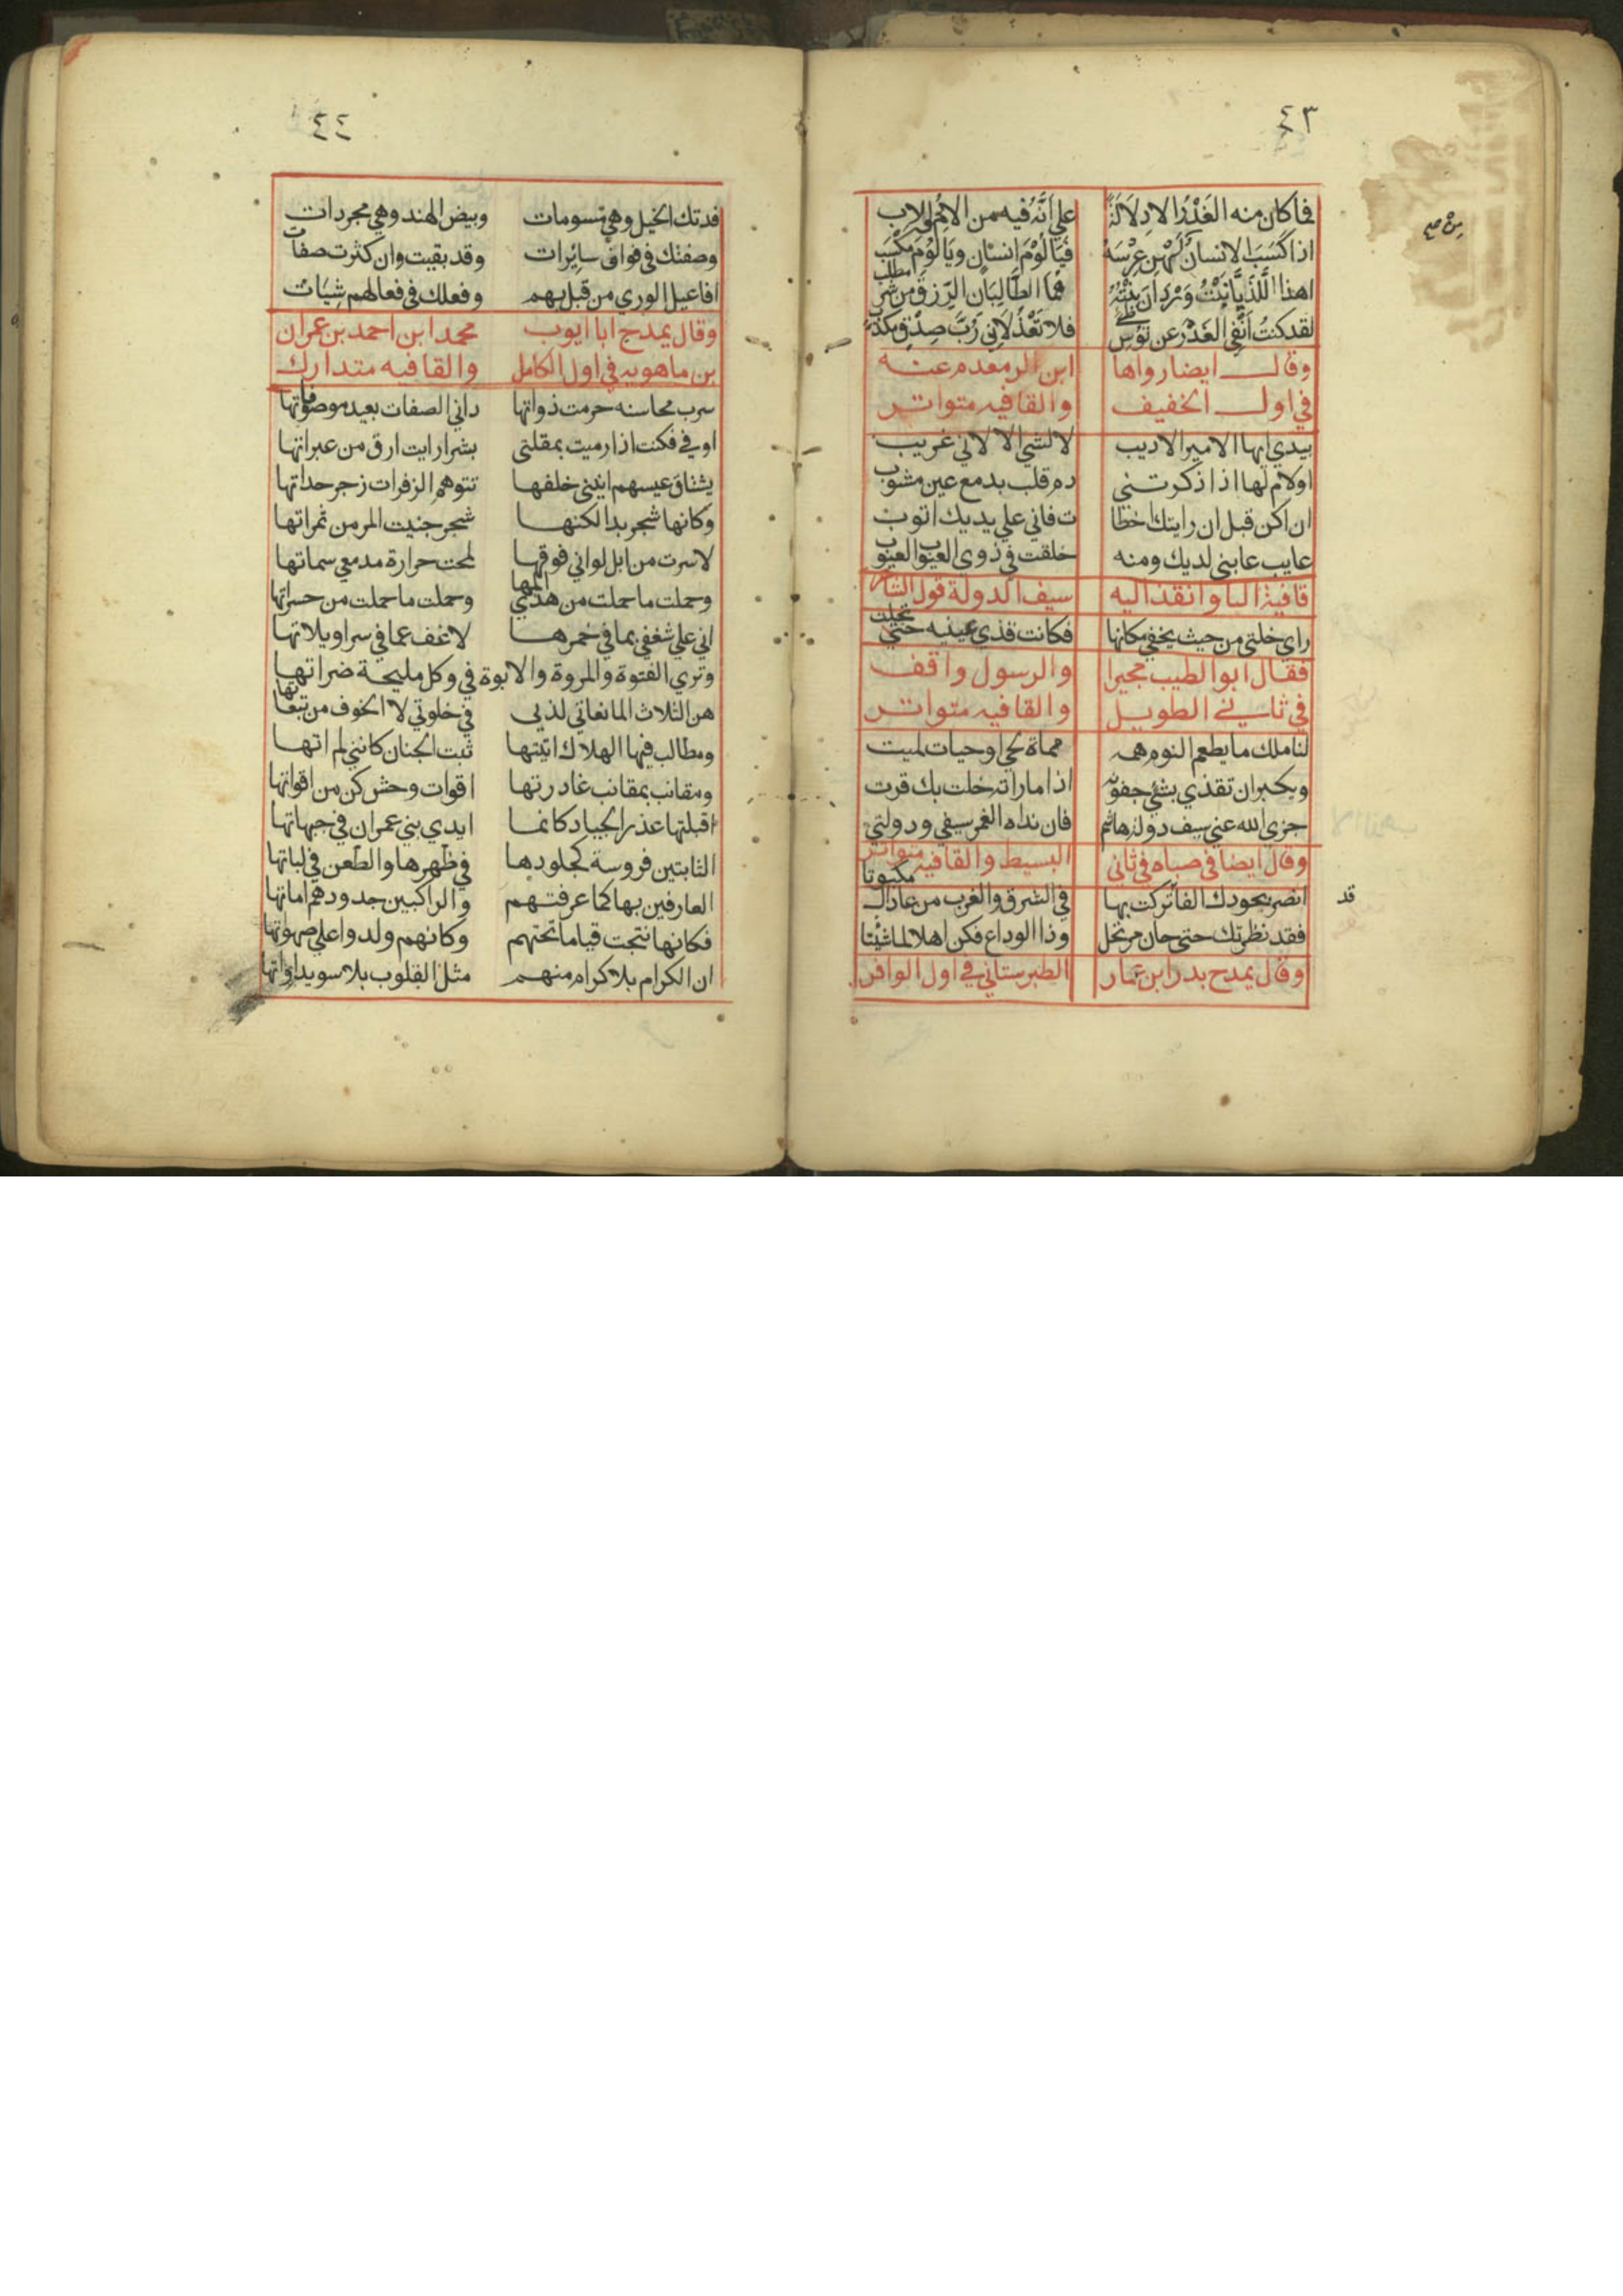 ٤٣
فما كان منه الغَدْرُ الا دِلَالَةً على أنّه فيه من الامّ والاب
اذا كَسَبَ الانسانُ من هَنِ عِرْسَهُ فَيَا لُوْمَ انسانٍ ويَا لُؤْمَ مَكْسَب
اهذا اللَّذَيَّا بِنْتُ وَرْدَانَ بِنْتُهُ هُمَا الطَّالِبَانِ الرّزقَ من شر مطلب
لقد كنتُ أَنْفِي الغَدْرَ عن تُوْسِ طَيّءٍ فلا تَعْذُلَانِي رُبَّ صِدْقٍ مكذّب
وقال ايضا رواها ابن الرمعدم عنه
في اول الخفيف والقافيه متواتر
بيدي ايها الامير الاديب لا لشي الا لاني غريب
او لام لها اذا ذكرتني دم قلب بدمع عين مشوب
ان اكن قبل ان رايتك اخطا ت فاني علي يديك اتوب
عايب عابني لديك ومنه خلقت في ذوي العيوب العيوب
قافية التا وانفذ اليه سيف الدولة قول الشاعر
راي خلتي من حيث يخفي مكانها فكانت قذي عينيه حتي تجلت
فقال ابوا الطيب مجيرا والرسول واقف
في ثاني الطويل والقافيه متواتر
لنا ملك ما يطعم النوم همه ممات لحي او حيات لميت
ويكبر ان تقذي بشي جفونه اذا ما راته خلت بك قرت
جزي الله عني سيف دولة هاشم فان نداه الغمر سيفي ودولتي
وقال ايضا في صباه في ثاني البسيط والقافيه متواتر
انصر بجودك الفا تركت بها في الشرق والغرب من عاداك مكبوتا
قد
فقد نظرتك حتي حان مرتحل وذا الوداع فكن اهلا لما شئتا
وقال يمدح بدر ابن عمار الطبرستاني في اول الوافر
٤٤
فدتك الخيل وهي مسومات وبيض الهند وهي مجردات
وصفتك في قواف سائرات وقد بقيت وان كثرت صفات
افاعيل الوري من قبل بهم وفعلك في فعالهم شيات
وقال يمدح ابا ايوب محمد ابن احمد بن عمران
بن ماهويه في اول الكامل والقافيه متدارك
سرب محاسنه حرمت ذواتها داني الصفات بعيد موصوفاتها
اوفي فكنت اذا رميت بمقلتي بشرا رايت ارق من عبراتها
يشتاق عيسهم انيني خلفها تتوهم الزفرات زجر حداتها
وكانها شجر بدا لكنها شجر جنيت المر من ثمراتها
لا سرت من ابل لو اني فوقها لمحت حرارة مدمعي سماتها
وحملت ما حملت من هذي المها وحملت ما حملت من حسراتها
اني علي شغفي بما في خمرها لاعف عما في سراويلاتها
وتري الفتوة والمروة والابوة في وكل مليحة ضراتها
هن الثلاث المانعاتي لذتي في خلوتي لا الخوف من تبعاتها
ومطالب فيها الهلاك اتيتها ثبت الجنان كانني لم اتها
ومقانب بمقانب غادرتها اقوات وحش كن من اقواتها
اقبلتها غرر الجياد كانما ايدي بني عمران في جبهاتها
الثابتين فروسة كجلودها في ظهرها والطعن في لباتها
العارفين بها كما عرفتهم والراكبين جدودهم اماتها
فكانها نتجت قياما تحتهم وكانهم ولدوا علي صهواتها
ان الكرام بلا كرام منهم مثل القلوب بلا سويداواتها